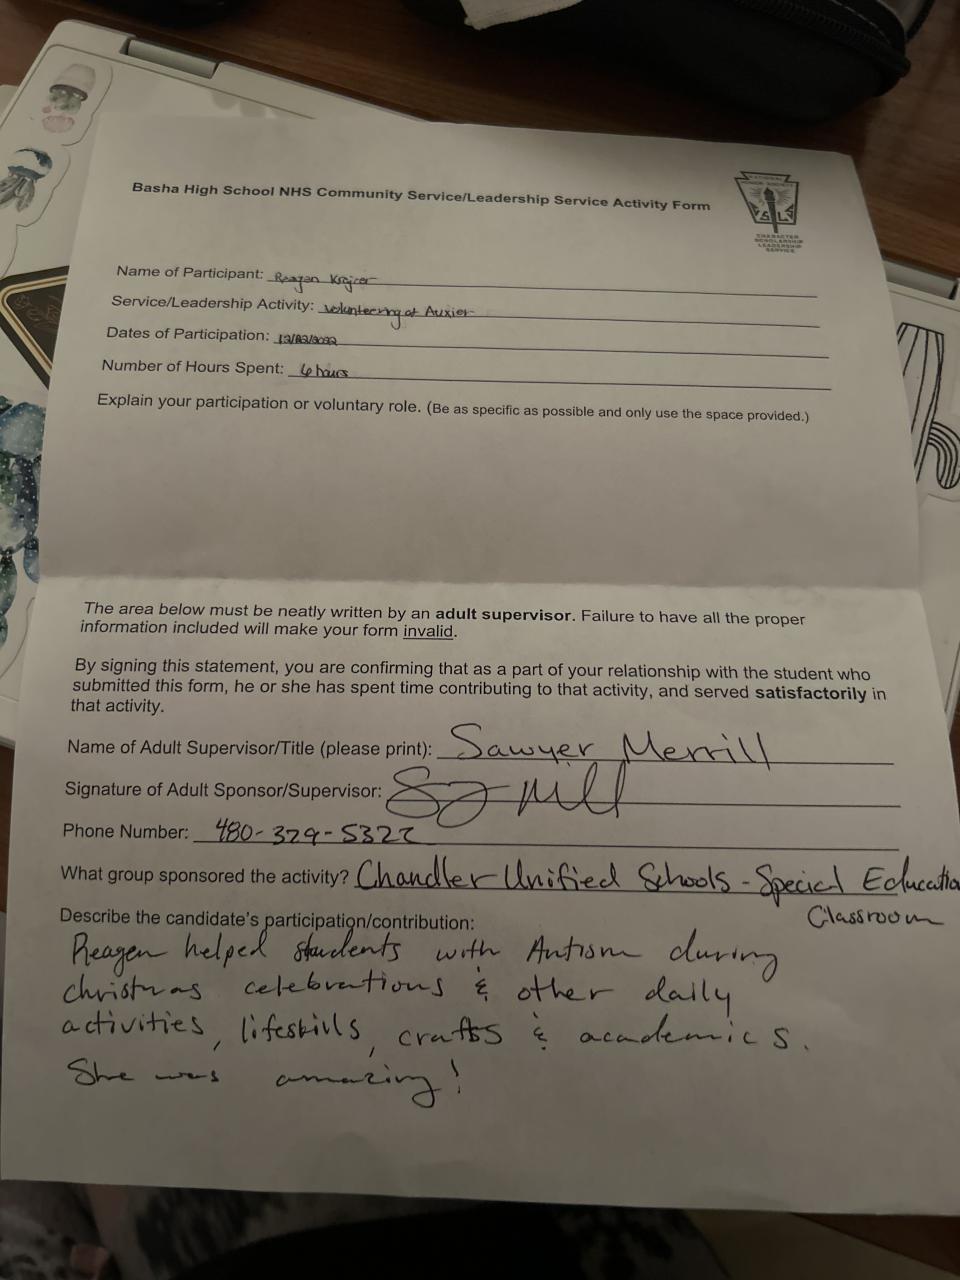 Basha High School NHS Community Service/Leadership Service Activity Form
NATIONAL
HONOR SOCIETY
CHARACTER
SCHOLARSHIP
LEADERSHIP
SERVICE
Name of Participant: Reagan Krajcer
Service/Leadership Activity: Volunteering at Auxier
Dates of Participation:
Number of Hours Spent: 6 hours
Explain your participation or voluntary role. (Be as specific as possible and only use the space provided.)
The area below must be neatly written by an adult supervisor. Failure to have all the proper
information included will make your form invalid.
By signing this statement, you are confirming that as a part of your relationship with the student who
submitted this form, he or she has spent time contributing to that activity, and served satisfactorily in
that activity.
Name of Adult Supervisor/Title (please print): Sawyer Merrill
Signature of Adult Sponsor/Supervisor:
Phone Number: 480-329-5322
What group sponsored the activity? Chandler Unified Schools - Special Educatio
Classroom
Describe the candidate's participation/contribution:
Reagen helped students with Autism during
christmas celebrations & other daily
activities, lifeskills, crafts & academics.
She was amazing!